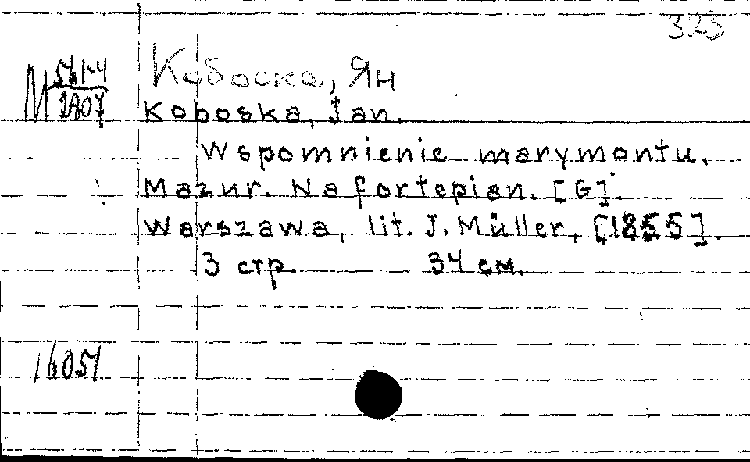 3.25
Кобоска, Ян
М 561-4
2707
Koboska, Jan.
Wspomnienie marymontu.
Mazur. Na fortepian. [G].
Warszawa, lit. J. Müller, [1855].
3 стр. 34 см.
16051